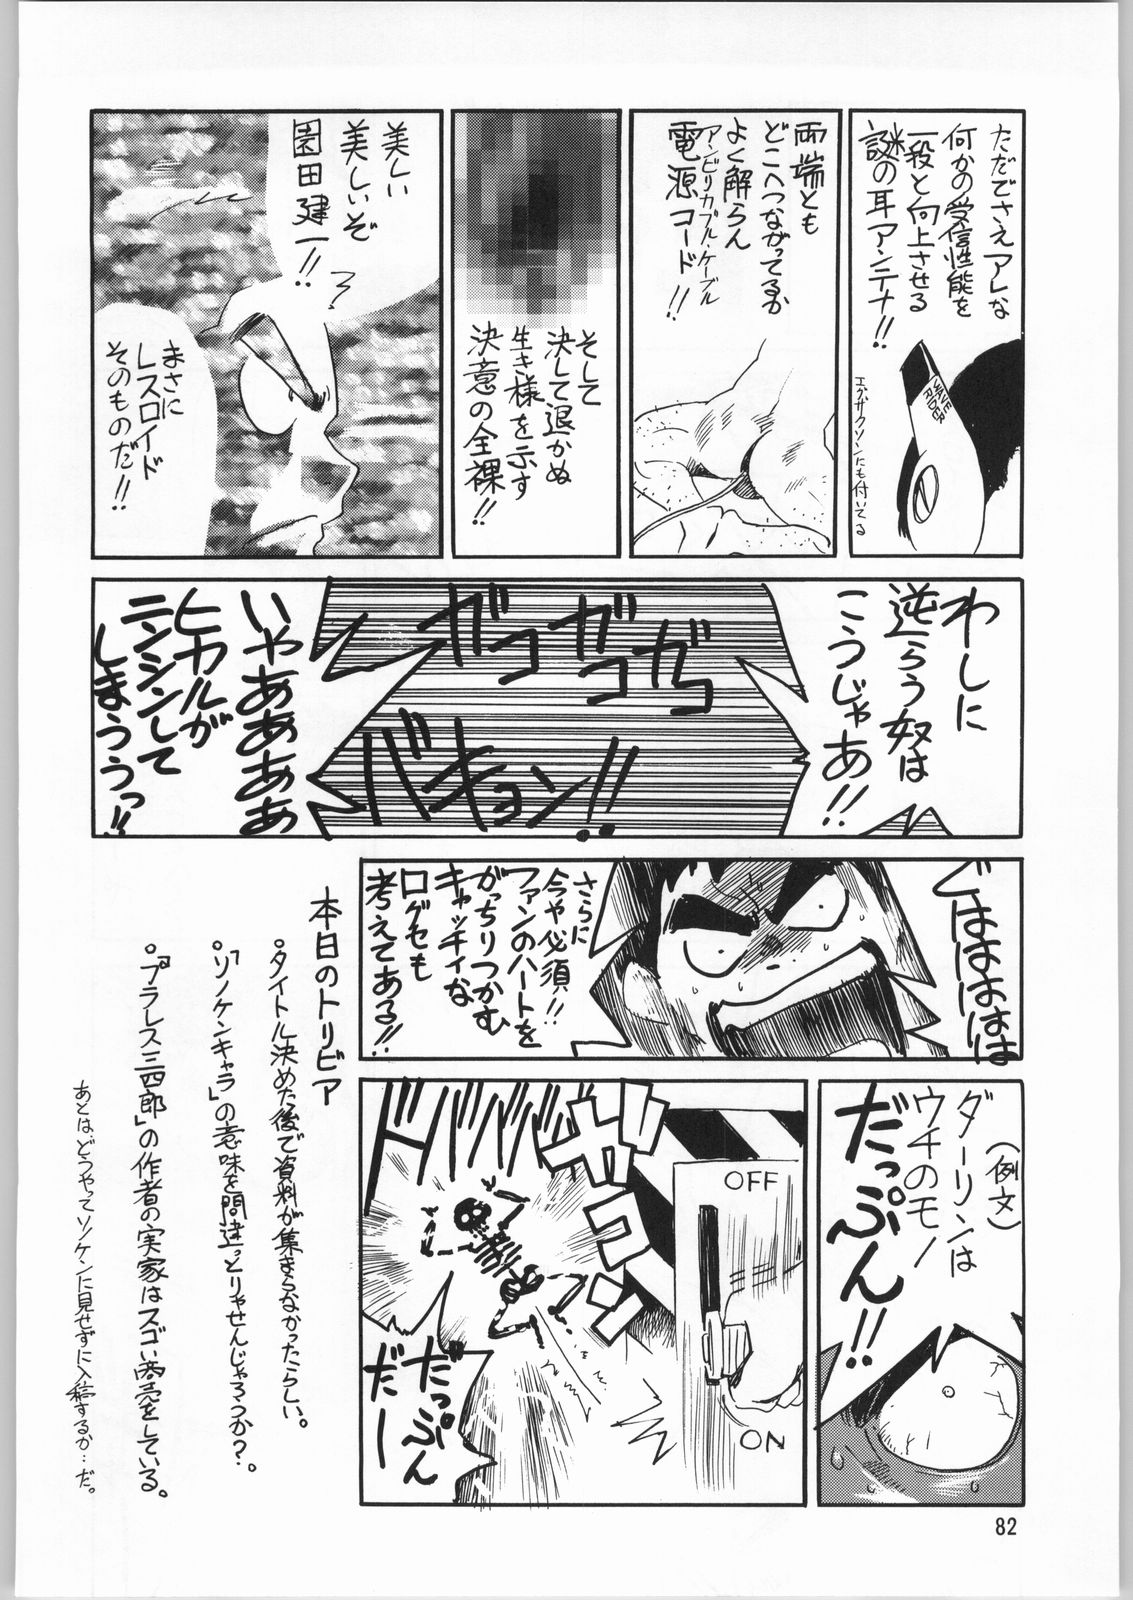 ただでさえアレな
何かの受信性能を
一段と向上させる
謎の耳アンテナ!!
WAVE
RIDER
エクサクソンにも付いてる
両端とも
どこへつながってるか
よく解らん
アンビリカブル・ケーブル
電源コード!!
そして
決して退かぬ
生き様を示す
決意の全裸!!
美しい
美しいぞ
園田建一!!
まさに
レスロイド
そのものだ!!
わしに
逆らう奴は
こうじゃあ!!
ガゴ
ガゴ
ガゴ
バキョン!!
いやああああ
ヒカルが
ニンシンして
しまううっ!!
どはははは
さらに
今や必須!!
ファンのハートを
がっちりつかむ
キャッチィな
口グセも
考えてある!!
(例文)
ダーリンは
ウチのモノ
だっぷん!!
OFF
ON
ガコン
ドババババ
だっぷん
だー
本日のトリビア
・タイトル決めた後で資料が集まらなかったらしい。
・「ソノケンキャラ」の意味を間違っとりゃせんじゃろうか?。
・「プラレス三四郎」の作者の実家はスゴい商売をしている。
あとはどうやってソノケンに見せずに入稿するか…だ。
82